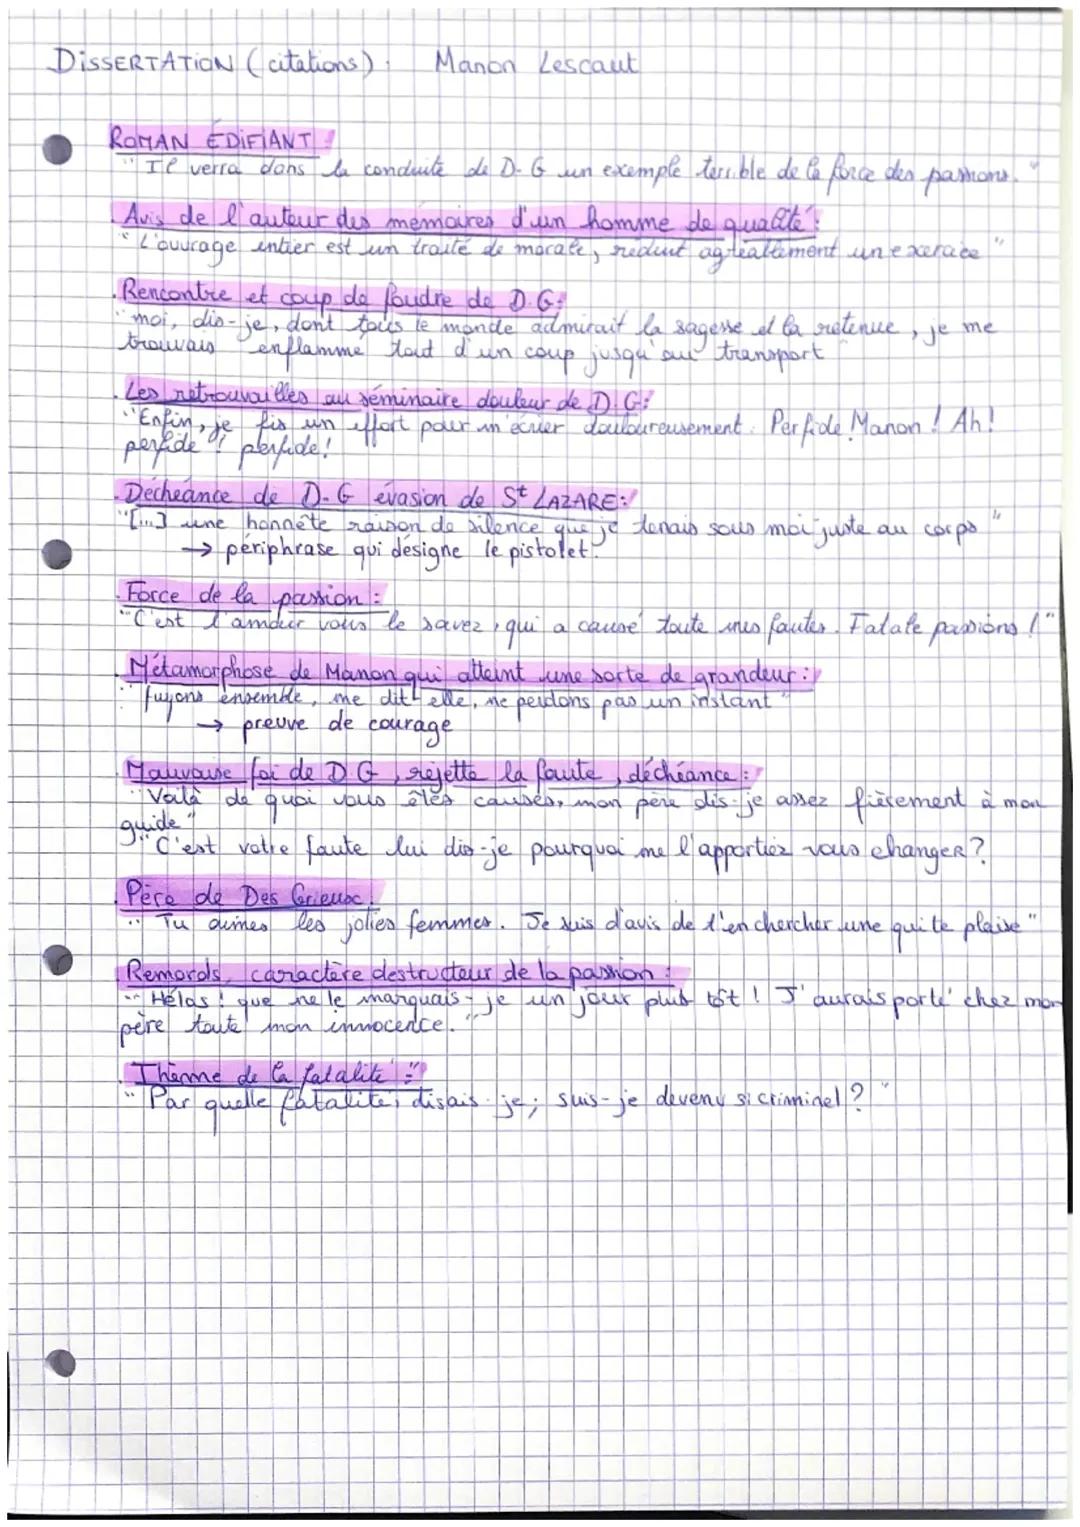 DISSERTATION (citations) : Manon Lescaut
ROMAN ÉDIFIANT :
"Il verra dans la conduite de D-G un exemple terrible de la force des passions."
. Avis de l'auteur des mémoires d'un homme de qualité :
"L'ouvrage entier est un traité de morale, réduit agréablement un exercice"
. Rencontre et coup de foudre de D.G :
"moi, dis-je, dont tous le monde admirait la sagesse et la retenue, je me
trouvais enflammé tout d'un coup jusqu'au transport"
. Les retrouvailles au séminaire douleur de D.G :
"Enfin, je fis un effort pour m'écrier douloureusement : Perfide Manon ! Ah !
perfide ! perfide !
. Déchéance de D-G évasion de St LAZARE :
"[...] une honnête raison de silence que je tenais sous moi juste au corps"
→ périphrase qui désigne le pistolet.
. Force de la passion :
"C'est l'amour vous le savez, qui a causé toute mes fautes. Fatale passions !"
. Métamorphose de Manon qui atteint une sorte de grandeur :
"fuyons ensemble, me dit-elle, ne perdons pas un instant"
→ preuve de courage
. Mauvaise foi de D G, rejette la faute, déchéance :
"Voilà de quoi vous êtes causes, mon père dis-je assez fièrement à mon
guide"
"C'est votre faute lui dis-je pourquoi me l'apportiez vous changer ?
. Père de Des Grieux :
"Tu aimes les jolies femmes. Je suis d'avis de t'en chercher une qui te plaise"
. Remords, caractère destructeur de la passion :
"Hélas ! que ne le marquais-je un jour plus tôt ! J'aurais porté chez mon
père toute mon innocence."
. Thème de la fatalité :
"Par quelle fatalité, disais-je, suis-je devenu si criminel ?"